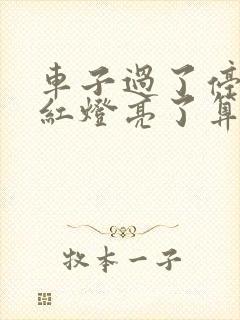 車子過了停
紅燈亮了算
牧本一子